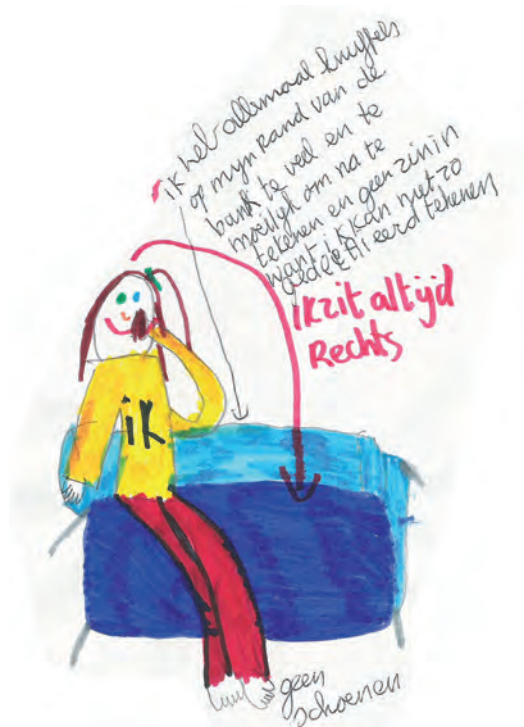 ik heb allemaal knuffels
op mijn Rand van de
bank te veel en te
moeilijk om na te
tekenen en geen zin in
want ik kan niet zo
gedetaileerd tekenen
ik zit altijd
Rechts
ik
geen
schoenen